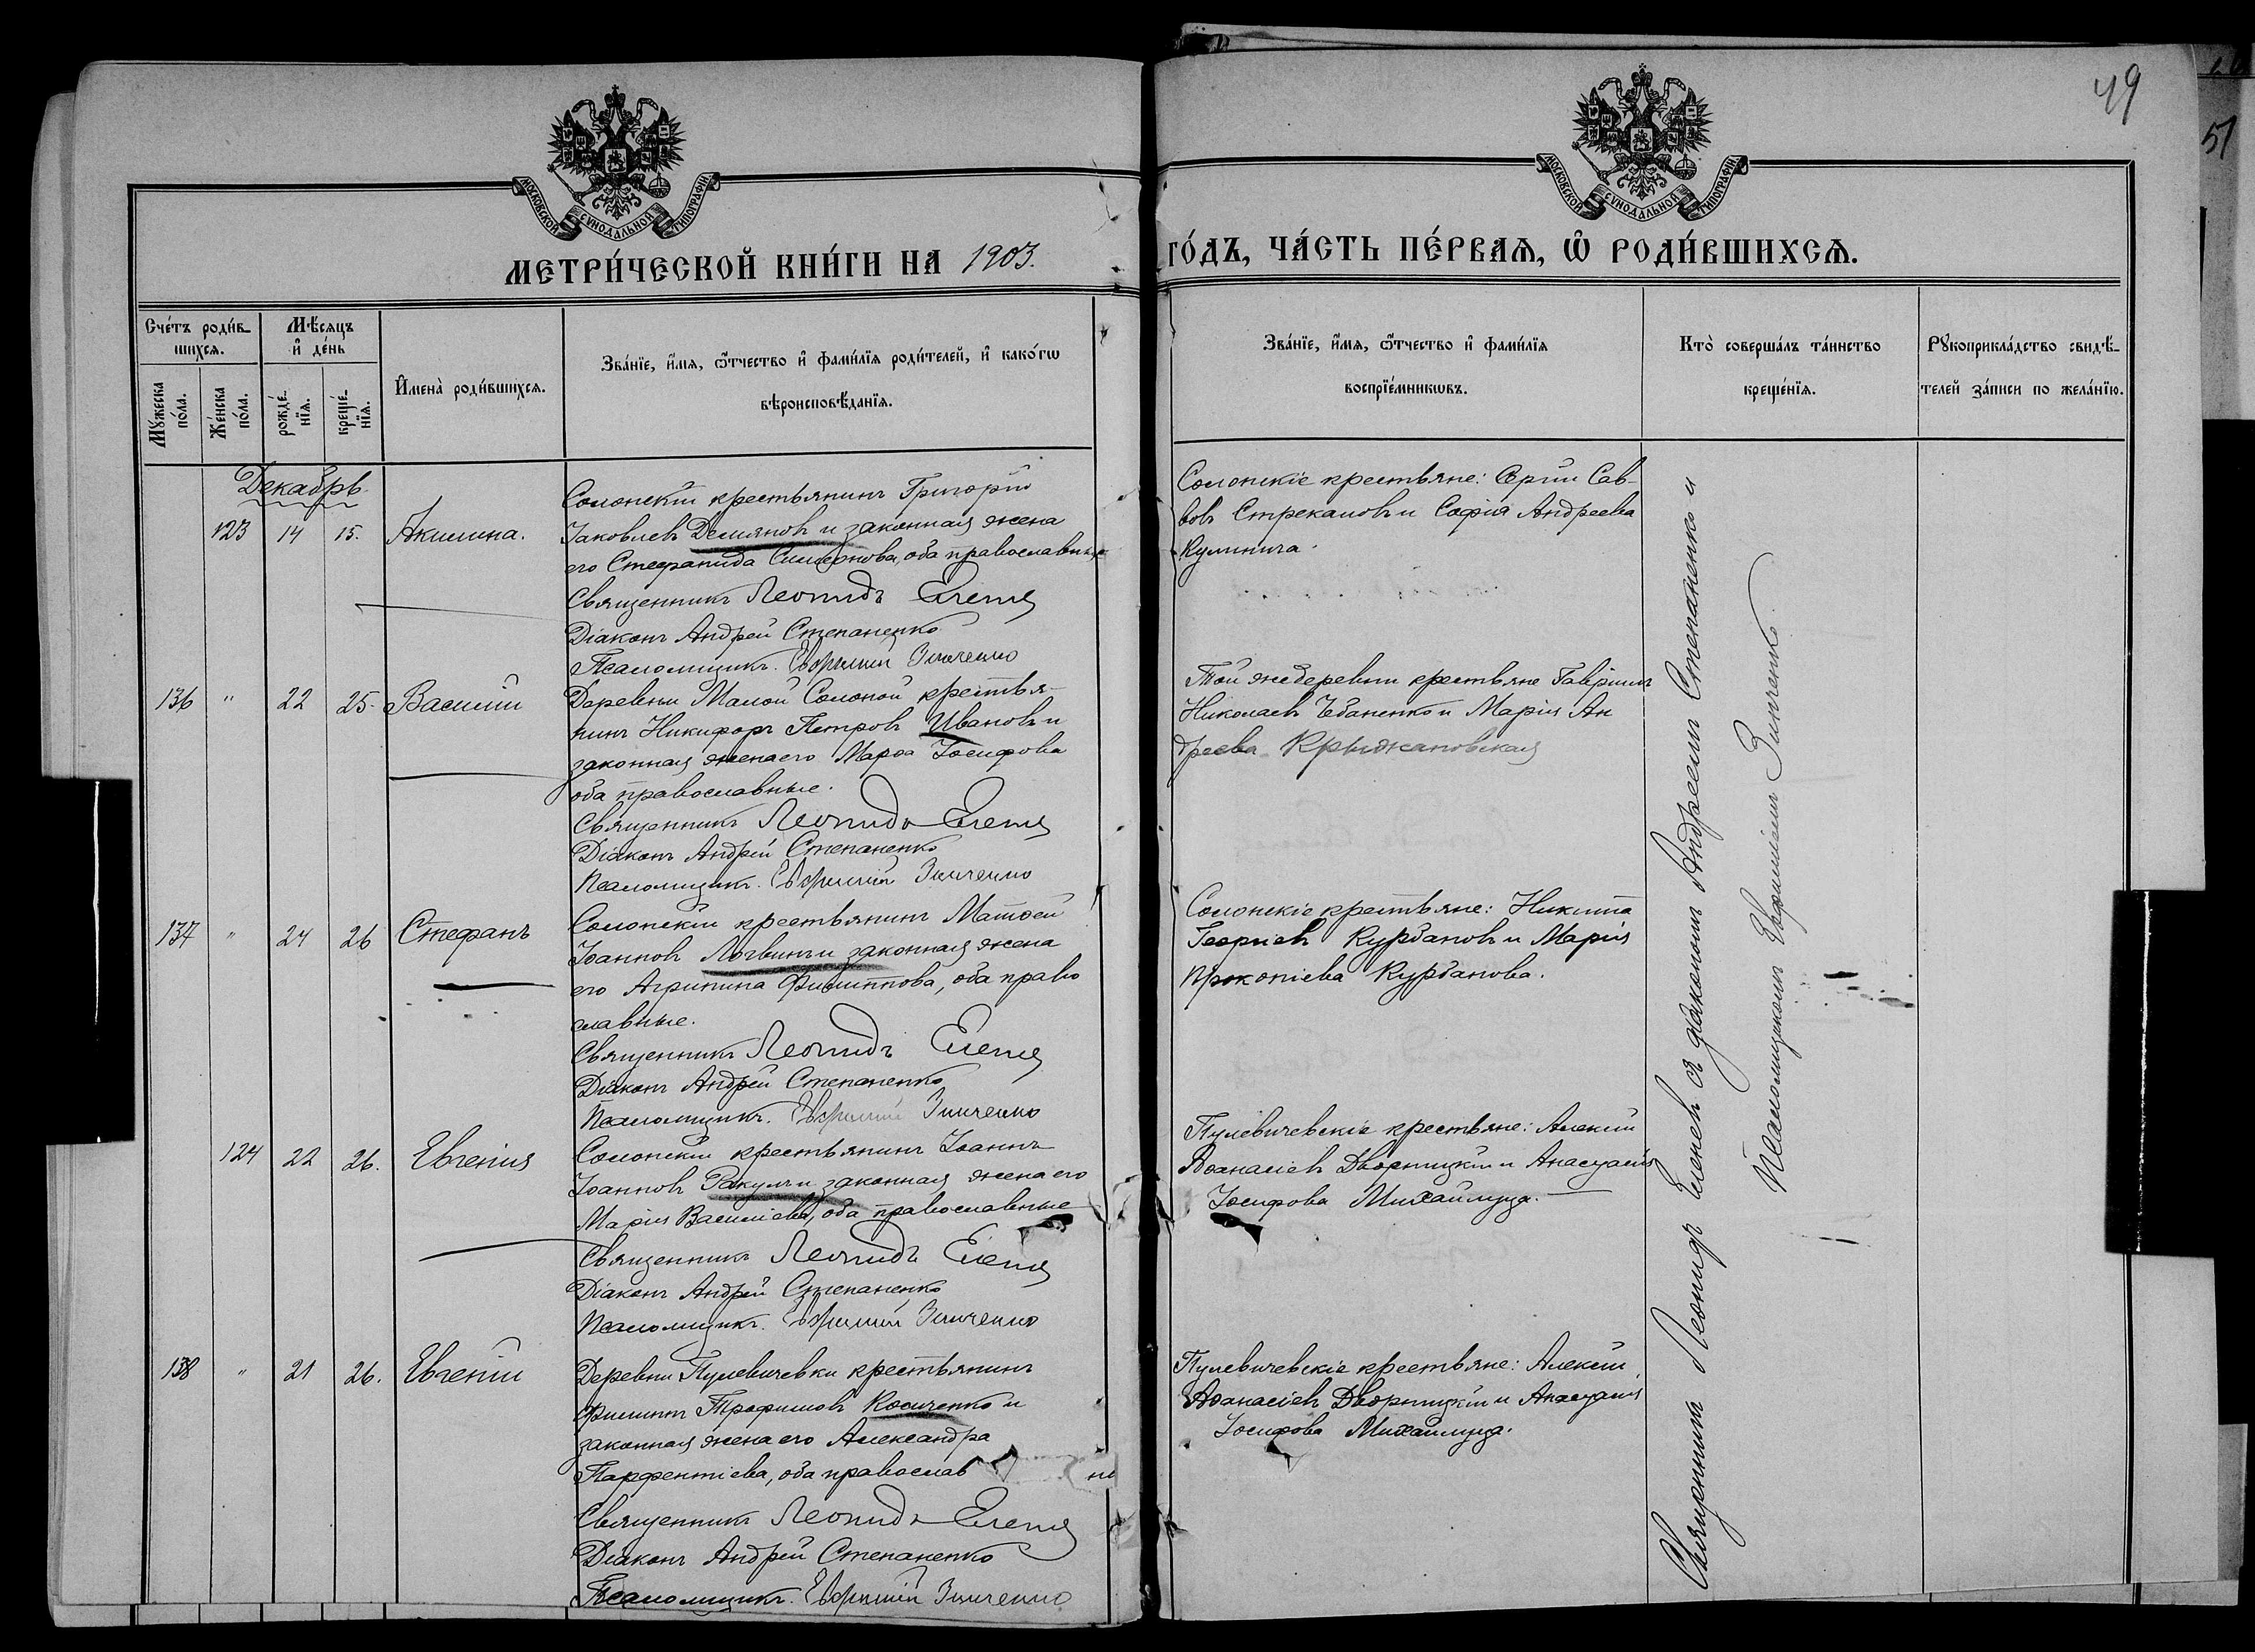 49
51
МОСКОВСКОЙ СѴНОДАЛЬНОЙ ТИПОГРАФІИ
МОСКОВСКОЙ СѴНОДАЛЬНОЙ ТИПОГРАФІИ
МЕТРИ́ЧЕСКОЙ КНИ́ГИ НА 1903.
ГО́ДЪ, ЧА́СТЬ ПЕ́РВАѦ, Ѽ РОДИ́ВШИХСѦ.
Сче́тъ роди́в-
шихсѧ.
Мꙋжеска по́ла.
Же́нска по́ла.
Мѣ́сѧцъ
и҆ де́нь
рожде́-
нїѧ.
креще́-
нїѧ.
И҆мена̀ роди́вшихсѧ.
Зва́нїе, и҆́мѧ, ѻ҆́тчество и҆ фами́лїѧ роди́телей, и҆ како́гѡ
вѣроисповѣ́данїѧ.
Зва́нїе, и҆́мѧ, ѻ҆́тчество и҆ фами́лїѧ
воспрїе́мникѡвъ.
Кто̀ соверша́лъ та́инство
креще́нїѧ.
Рꙋкоприкла́дство свидѣ́-
телей за́писи по жела́нїю.
Декабрь.
123 14 15. Акилина.
Солонскій крестьянинъ Григорій
Іаковлевъ Демяновъ и законная жена
его Стефанида Симеонова, оба православные
Священникъ Леонидъ Еленев
Діаконъ Андрей Степаненко
Псаломщикъ. Евфимій Зинченко
Солонскіе крестьяне: Сергій Сав-
вовъ Стрекаловъ и Софія Андреева
Кулинича.
136 " 22 25. Василій
Деревни Малой Солоной крестья-
нинъ Никифоръ Петровъ Ивановъ и
законная жена его Марѳа Іосифова
оба православные.
Священникъ Леонидъ Еленев
Діаконъ Андрей Степаненко
Псаломщикъ. Евфимій Зинченко
Той же деревни крестьяне Гавріилъ
Николаевъ Чебаненко и Марія Ан
дреева Крыжановская
137 " 24 26 Стефанъ
Солонскій крестьянинъ Матѳей
Іоанновъ Логвинъ и законная жена
его Агрипина Филиппова, оба право
славные.
Священникъ Леонидъ Еленев
Діаконъ Андрей Степаненко
Псаломщикъ. Евфимій Зинченко
Солонскіе крестьяне: Никита
Георгіевъ Курбановъ и Марія
Прокопіева Курбанова.
124 22 26. Евгенія
Солонскій крестьянинъ Іоаннъ
Іоанновъ Ракулъ и законная жена его
Марія Василіева, оба православные
Священникъ Леонидъ Еленев
Діаконъ Андрей Степаненко
Псаломщикъ. Евфимій Зинченко
Пулевичевскіе крестьяне: Алексій
Аѳанасіевъ Дворницкій и Анастасія
Іосифова Михайлуца.
138 " 21 26. Евгеній
Деревни Пулевичевки крестьянинъ
Филиппъ Трофимовъ Косиченко и
законная жена его Александра
Парфентіева, оба православ
Священникъ Леонидъ Еленев
Діаконъ Андрей Степаненко
Псаломщикъ. Евфимій Зинченко
Пулевичевскіе крестьяне: Алексій
Аѳанасіевъ Дворницкій и Анастасія
Іосифова Михайлуца.
Священникъ Леонидъ Еленевъ съ діакономъ Андреемъ Степаненко и
Псаломщикомъ Евфиміемъ Зинченко